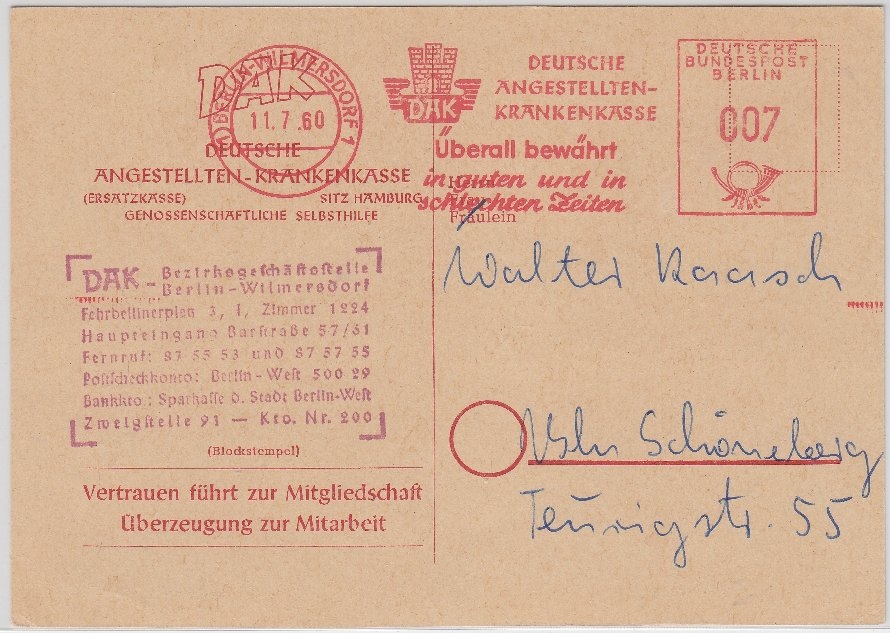 BERLIN-WILMERSDORF 1
11.7.60
DAK
DEUTSCHE
ANGESTELLTEN-KRANKENKASSE
(ERSATZKASSE) SITZ HAMBURG
GENOSSENSCHAFTLICHE SELBSTHILFE
DAK
DEUTSCHE
ANGESTELLTEN-
KRANKENKASSE
Überall bewährt
in guten und in
schlechten Zeiten
DEUTSCHE
BUNDESPOST
BERLIN
007
Fräulein
DAK - Bezirksgeschäftsstelle
Berlin-Wilmersdorf
Fehrbellinerplatz 3, I, Zimmer 1224
Haupteingang Barstraße 57/61
Fernruf: 87 55 53 und 87 57 55
Postscheckkonto: Berlin-West 500 29
Bankkto.: Sparkasse d. Stadt Berlin-West
Zweigstelle 91 — Kto. Nr. 200
(Blockstempel)
Vertrauen führt zur Mitgliedschaft
Überzeugung zur Mitarbeit
Walter Raasch
Bln Schöneberg
55